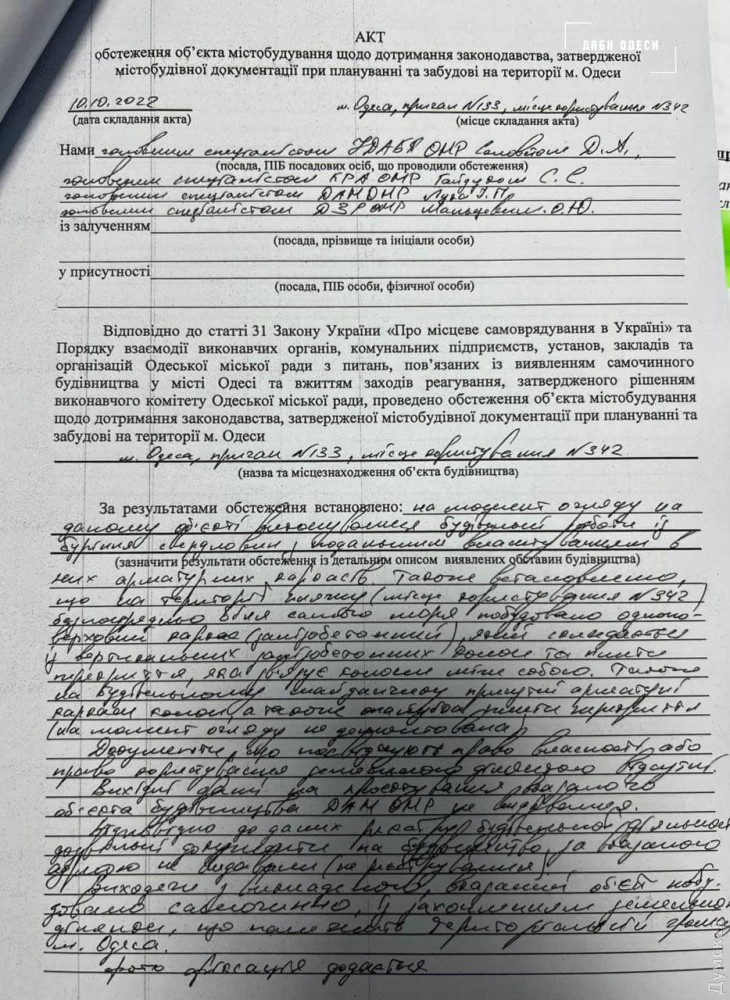 ДАБК ОДЕСИ
АКТ
обстеження об’єкта містобудування щодо дотримання законодавства, затвердженої
містобудівної документації при плануванні та забудові на території м. Одеси
10.10.2022
м. Одеса, причал №133, місце користування №342
(дата складання акта)
(місце складання акта)
Нами головним спеціалістом УДАБК ОМР Д.А.,
(посада, ПІБ посадових осіб, що проводили обстеження)
головним спеціалістом КРА ОМР Гайдуком С.Є.
головним спеціалістом ДАМ ОМР
головним спеціалістом ДЗР ОМР О.Ю.
із залученням
(посада, прізвище та ініціали особи)
у присутності
(посада, ПІБ особи, фізичної особи)
Відповідно до статті 31 Закону України «Про місцеве самоврядування в Україні» та
Порядку взаємодії виконавчих органів, комунальних підприємств, установ, закладів та
організацій Одеської міської ради з питань, пов’язаних із виявленням самочинного
будівництва у місті Одесі та вжиттям заходів реагування, затвердженого рішенням
виконавчого комітету Одеської міської ради, проведено обстеження об’єкта містобудування
щодо дотримання законодавства, затвердженої містобудівної документації при плануванні та
забудові на території м. Одеси
м. Одеса, причал №133, місце користування №342
(назва та місцезнаходження об’єкта будівництва)
За результатами обстеження встановлено: на момент огляду на
даному об'єкті виконувалися будівельні роботи із
буріння свердловин з подальшим влаштуванням в
(зазначити результати обстеження із детальним описом виявлених обставин будівництва)
них арматурних каркасів. Також встановлено,
що на території пляжу (місце користування №342)
безпосередньо біля самого моря побудовано одно-
верховий каркас (залізобетонний), який складається
із вертикальних залізобетонних колон та плити
перекриття, яка з'єднує колони між собою. Також
на будівельному майданчику присутні арматурні
каркаси колон, а також опалубка плити перекриття
(на момент огляду не демонтована).
Документи, що посвідчують право власності або
право користування земельною ділянкою відсутні.
Вихідні дані на проектування вказаного
об'єкта будівництва ДАМ ОМР не видавалися.
Відповідно до даних реєстру будівельної діяльності
дозвільні документи на будівництво за вказаною
адресою не видавались (не реєструвались).
Виходячи з викладеного, вказаний об'єкт побу-
довано самочинно, із захопленням земельної
ділянки, що належить територіальній громаді
м. Одеса.
Фото фіксація додається
Думская